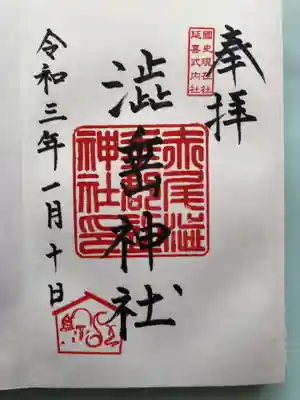 奉拝
國史現在社
延喜式内社
澁垂神社
赤尾澁
神社印
令和三年一月十日